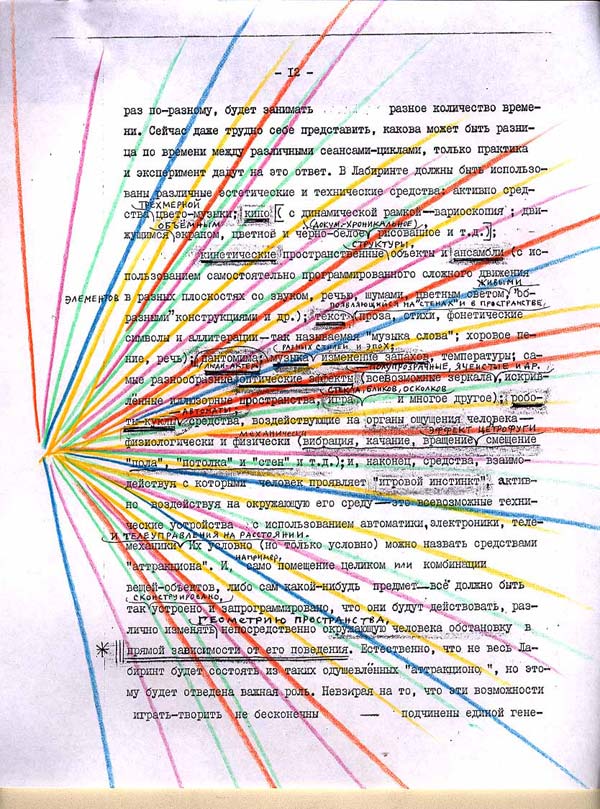 - 12 -
раз по-разному, будет занимать разное количество време-
ни. Сейчас даже трудно себе представить, какова может быть разни-
ца по времени между различными сеансами-циклами, только практика
и эксперимент дадут на это ответ. В Лабиринте должны быть использо-
ваны различные эстетические и технические средства: активно сред-
ТРЁХМЕРНОЙ
ства цвето-музыки; кино ( с динамической рамкой-вариоскопия ; дви-
ОБЪЁМНЫМ (ДОКУМ-ХРОНИКАЛЬНОЕ),
жущимся экраном, цветное и черно-белое, рисованное и т.д.);
СТРУКТУРЫ,
кинетические пространственные объекты и ансамбли (с ис-
пользованием самостоятельно программированного сложного движения
ЖИВЫМИ
ЭЛЕМЕНТОВ в разных плоскостях со звуком, речью, шумами, цветным светом, "об-
ПОЯВЛЯЮЩИЙСЯ НА "СТЕНАХ" И В ПРОСТРАНСТВЕ,
разными" конструкциями и др.); текст (проза, стихи, фонетические
символы и аллитерации - так называемая "музыка слова"; хоровое пе-
РАЗНЫХ СТИЛЕЙ И ЭПОХ;
ние, речь); пантомима; музыка изменение запахов, температуры; са-
АКТЁРА ПОЛУПРОЗРАЧНЫЕ, ЯЧЕИСТЫЕ И ДР.
мые разнообразные оптические эффекты (всевозможные зеркала, искрив-
СТЕКЛА, БЛИКОВ, ОСКОЛКОВ
лённые иллюзорные пространства, игра и многое другое); робо-
АВТОМАТЫ
ты-куклы средства, воздействующие на органы ощущения человека -
МЕХАНИЧЕСКИ ЭФФЕКТ ЦЕТРОФУГИ
физиологически и физически (вибрация, качание, вращение, смещение
"пола", "потолка" и "стен" и т.д.); и, наконец, средства, взаимо-
действуя с которыми человек проявляет "игровой инстинкт", актив-
но воздействуя на окружающую его среду - это всевозможные техни-
ческие устройства с использованием автоматики, электроники, теле-
И ТЕЛЕУПРАВЛЕНИЯ НА РАССТОЯНИИ.
механики Их условно (но только условно) можно назвать средствами
НАПРИМЕР,
"аттракциона". И, само помещение целиком или комбинации
вещей-объектов, либо сам какой-нибудь предмет - всё должно быть
СКОНСТРУИРОВАНО,
так устроено и запрограммировано, что они будут действовать, раз-
ГЕОМЕТРИЮ ПРОСТРАНСТВА,
лично изменять непосредственно окружающую человека обстановку в
* прямой зависимости от его поведения. Естественно, что не весь Ла-
биринт будет состоять из таких одушевлённых "аттракционо ", но это-
му будет отведена важная роль. Невзирая на то, что эти возможности
играть-творить не бесконечны — подчинены единой гене-